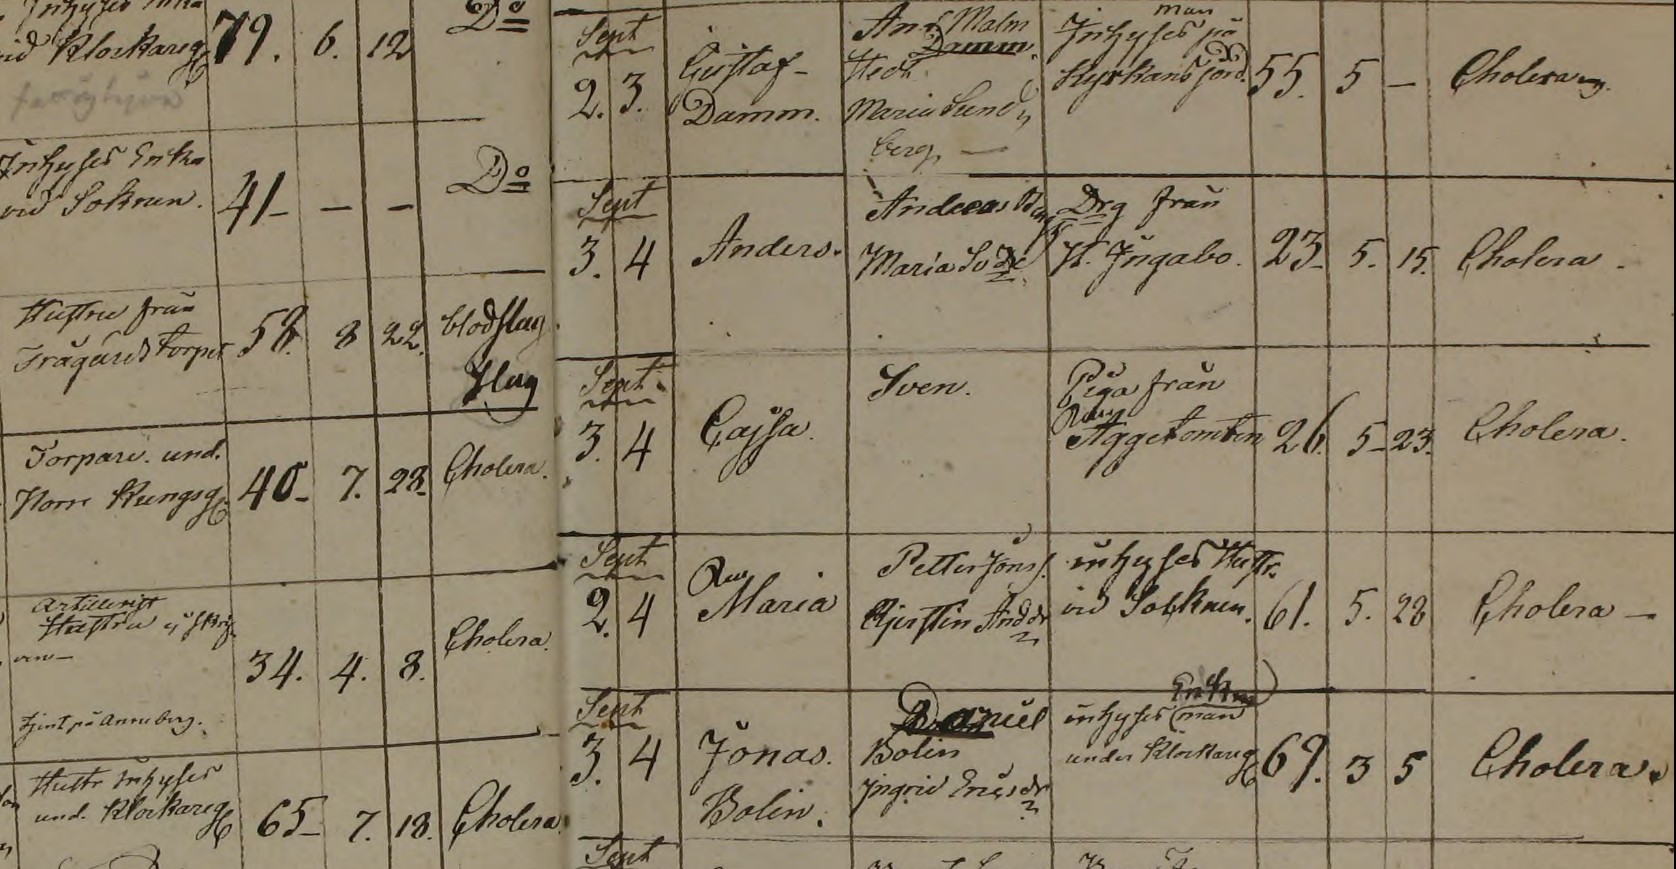 vid Klockareg 79. 6. 12 Do
Inhyses Enka
vid Soknen. 41 - - - Do
Hustru från
Trägårdstorpet 58. 8 22. blodslag
Slag
Torpare. und.
Norr Kungsg 40 - 7. 28. Cholera.
Hustru
34. 4. 8. Cholera.
tjent på Anneberg.
Hustr Inhyses
und. Klockareg 65 - 7. 18. Cholera.
Sept
2. 3.
Gustaf
Damm.
And. Malm
Damm.
Hedv.
Maria Sund
berg. —
man
Inhyses på
Kyrkans jord. 55. 5 - Cholera
Sept
3. 4
Anders.
Andreas
Maria
Drg från
N. Ingabo. 23. 5. 15. Cholera.
Sept
3. 4
Cajsa.
Sven.
Piga från
Äggetomten 26. 5 - 23. Cholera.
Sept
2. 4
Maria
Petter Jons.
Kjerstin And dr
inhyses Hustr.
vid Soknen. 61. 5. 28 Cholera —
Sept
3. 4
Jonas.
Bolin.
Daniel
Bolin
Ingrid Ericsdr
Enk
inhyses man
under Klockareg 69. 3 5 Cholera.
Sept